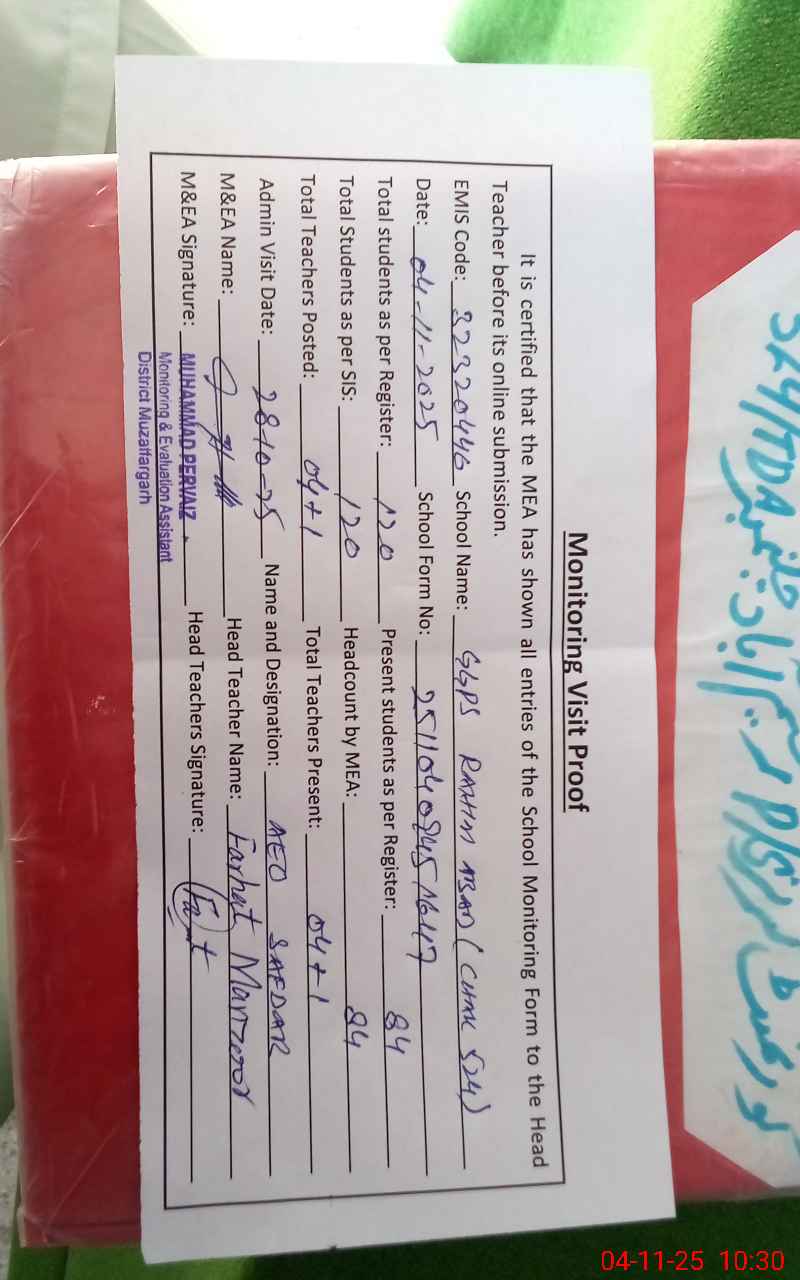 Monitoring Visit Proof
It is certified that the MEA has shown all entries of the School Monitoring Form to the Head
Teacher before its online submission.
EMIS Code: 32320446 School Name: GGPS RAHIM ABAD (CHAK 524)
Date: 04-11-2025 School Form No:
Total students as per Register: 120 Present students as per Register: 84
Total Students as per SIS: 120 Headcount by MEA: 84
Total Teachers Posted: 04+1 Total Teachers Present: 04+1
Admin Visit Date: 28-10-25 Name and Designation: AEO SAFDAR
M&EA Name: Head Teacher Name: Farhat Manzoor
M&EA Signature: MUHAMMAD PERVAIZ Head Teachers Signature:
Monitoring & Evaluation Assistant
District Muzaffargarh
524/TDA
گورنمنٹ گرلز P/S رحیم آباد
04-11-25 10:30